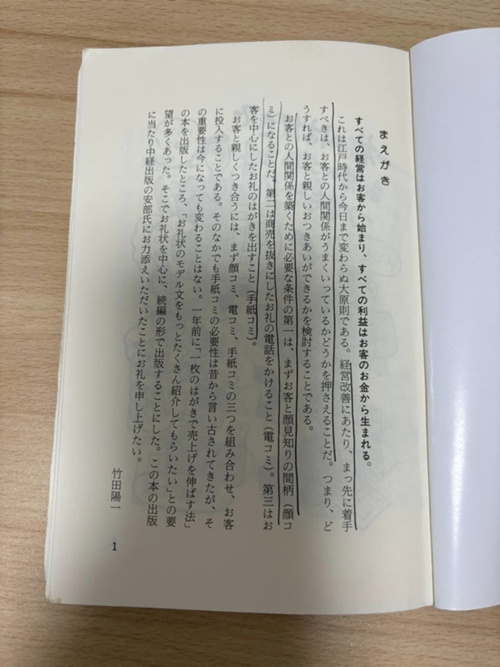 まえがき
すべての経営はお客から始まり、すべての利益はお客のお金から生まれる。
これは江戸時代から今日まで変わらぬ大原則である。経営改善にあたり、まっ先に着手
すべきは、お客との人間関係がうまくいっているかどうかを押さえることだ。つまり、ど
うすれば、お客と親しいおつきあいができるかを検討することである。
お客との人間関係を築くために必要な条件の第一は、まずお客と顔見知りの間柄（顔コ
ミ）になることだ。第二は商売を抜きにしたお礼の電話をかけること（電コミ）。第三はお
客を中心にしたお礼のはがきを出すこと（手紙コミ）。
お客と親しくつき合うには、まず顔コミ、電コミ、手紙コミの三つを組み合わせ、お客
に投入することである。そのなかでも手紙コミの必要性は昔から言い古されてきたが、そ
の重要性は今になっても変わることはない。一年前に「一枚のはがきで売上げを伸ばす法」
の本を出版したところ、「お礼状のモデル文をもっとたくさん紹介してもらいたい」との要
望が多くあった。そこでお礼状を中心に、続編の形で出版することにした。この本の出版
に当たり中経出版の安部氏にお力添えいただいたことにお礼を申し上げたい。
竹田陽一
1